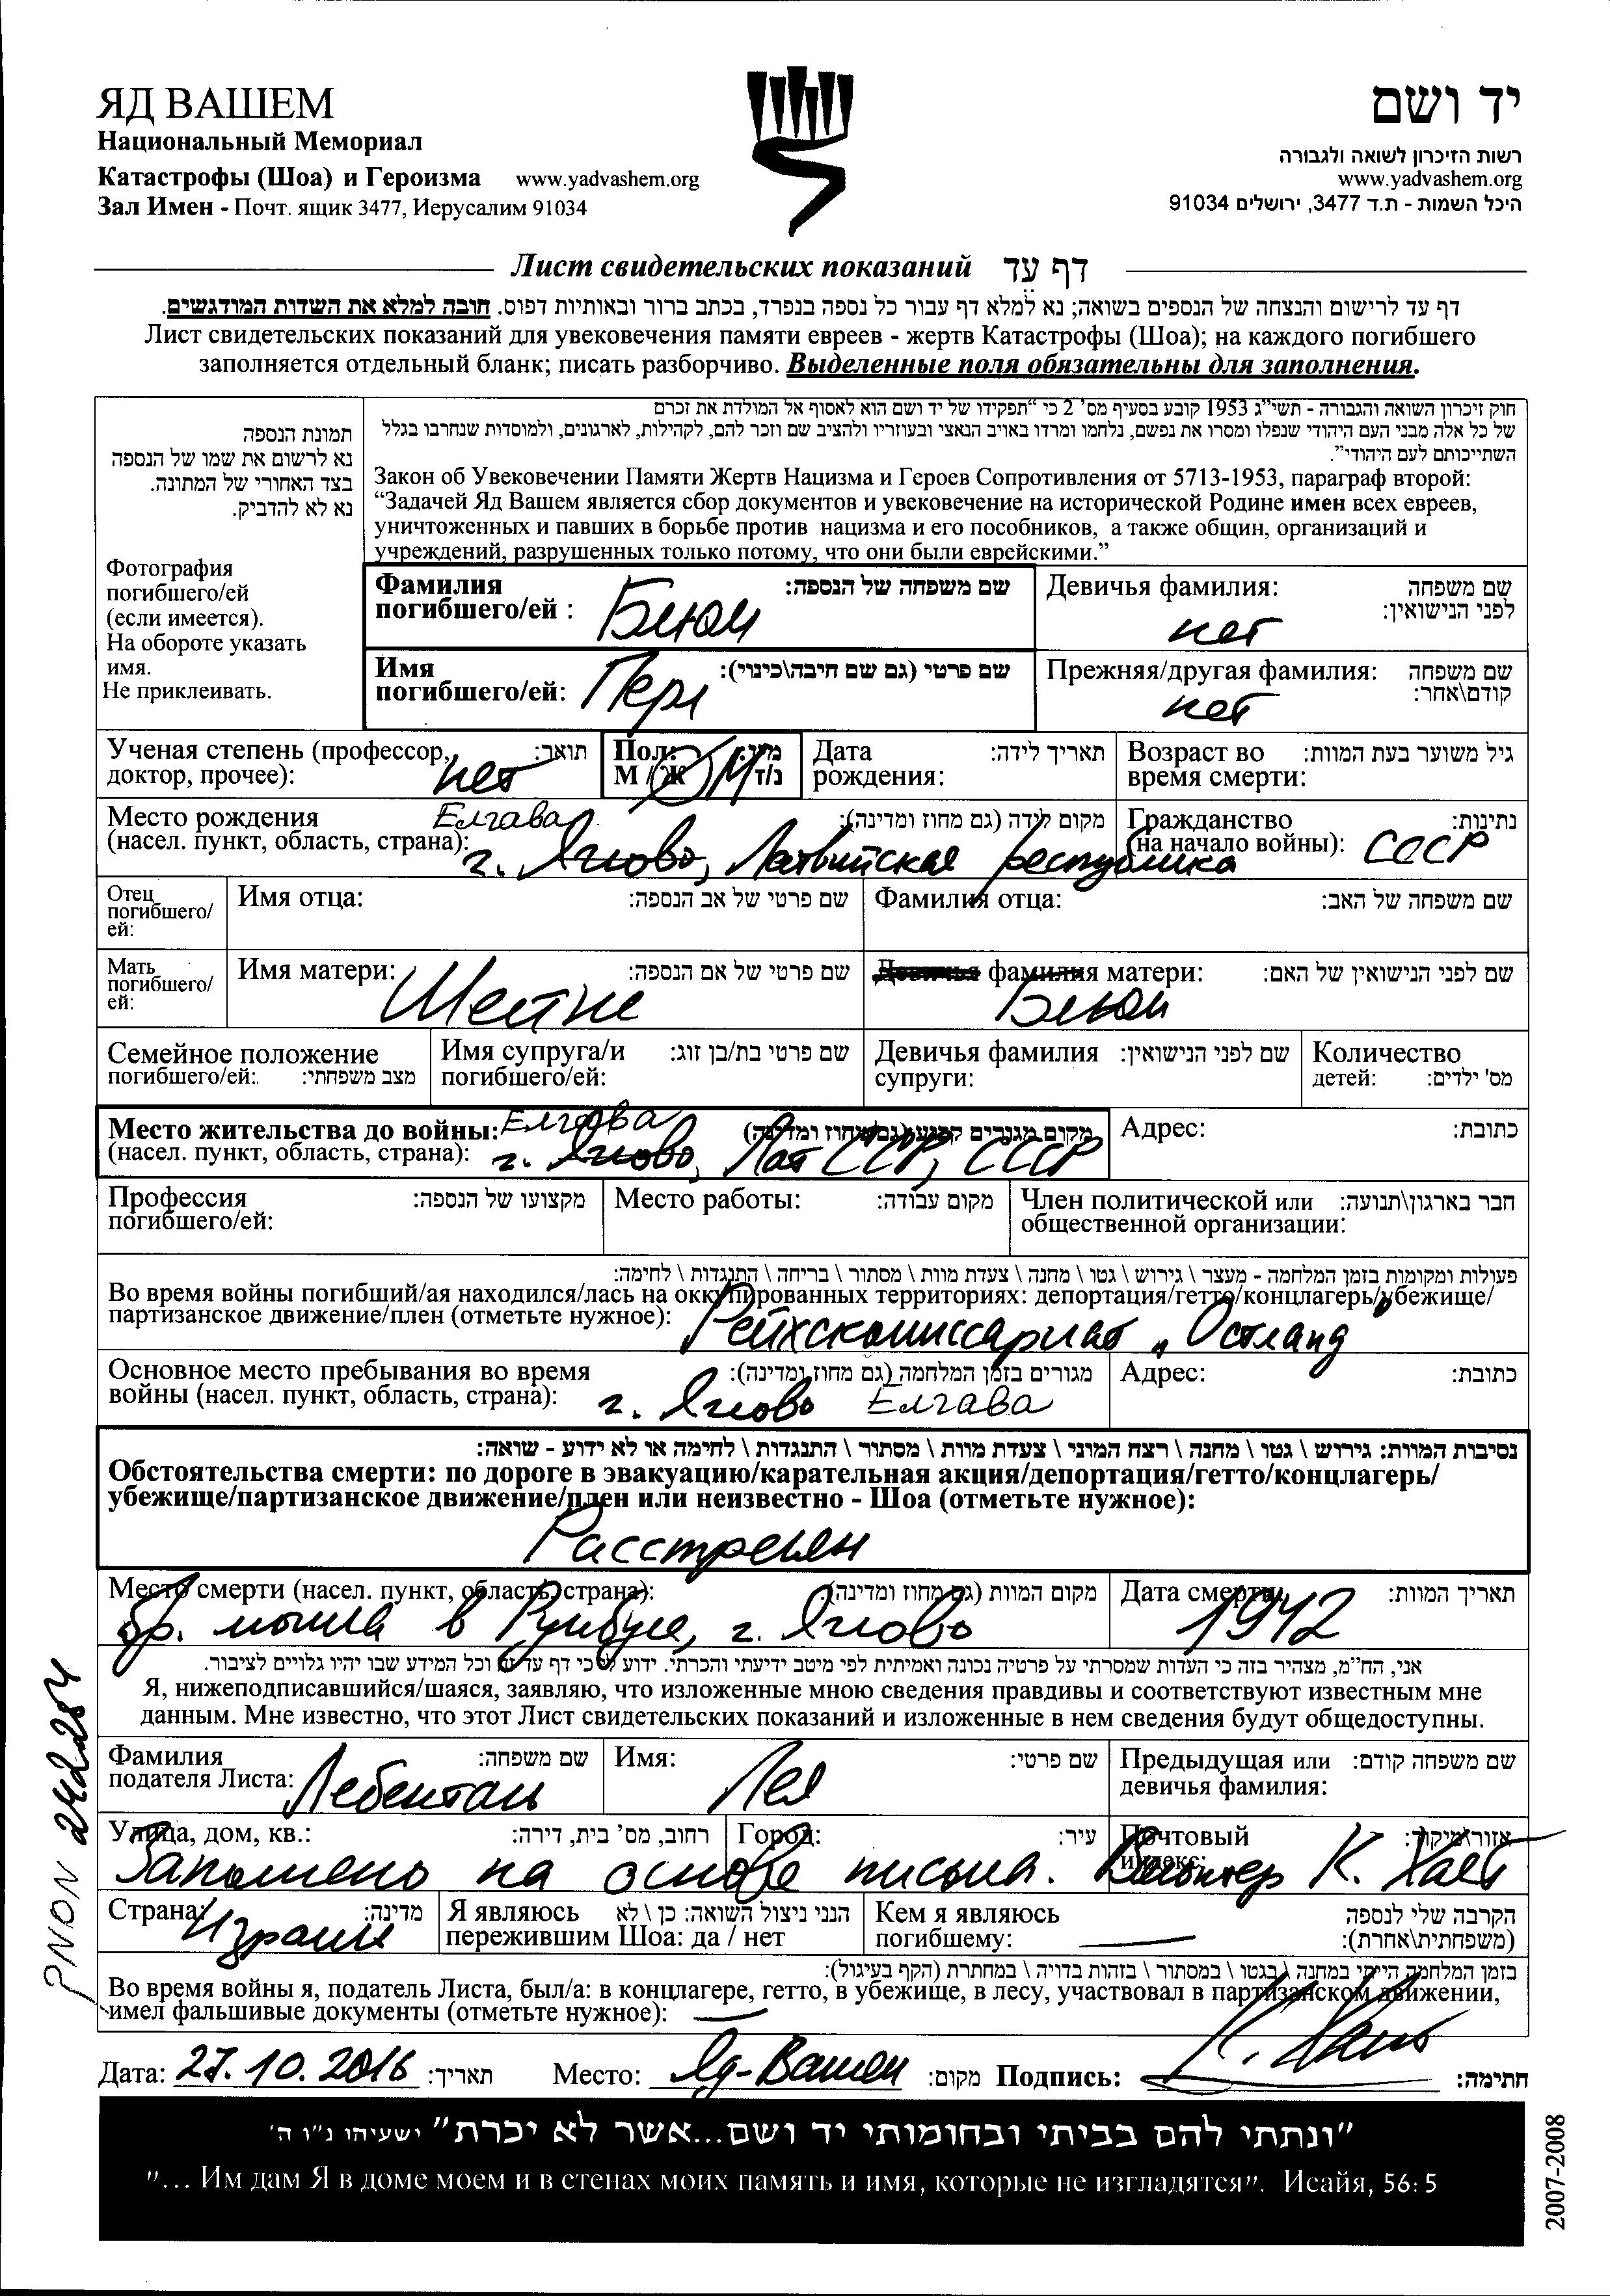 ЯД ВАШЕМ
Национальный Мемориал
Катастрофы (Шоа) и Героизма www.yadvashem.org
Зал Имен - Почт. ящик 3477, Иерусалим 91034
יד ושם
רשות הזיכרון לשואה ולגבורה
www.yadvashem.org
היכל השמות - ת.ד 3477, ירושלים 91034
Лист свидетельских показаний דף עד
דף עד לרישום והנצחה של הנספים בשואה; נא למלא דף עבור כל נספה בנפרד, בכתב ברור ובאותיות דפוס. חובה למלא את השדות המודגשים.
Лист свидетельских показаний для увековечения памяти евреев - жертв Катастрофы (Шоа); на каждого погибшего
заполняется отдельный бланк; писать разборчиво. Выделенные поля обязательны для заполнения.
תמונת הנספה
נא לרשום את שמו של הנספה
בצד האחורי של המתונה.
נא לא להדביק.
Фотография
погибшего/ей
(если имеется).
На обороте указать
имя.
Не приклеивать.
חוק זיכרון השואה והגבורה - תשי"ג 1953 קובע בסעיף מס' 2 כי "תפקידו של יד ושם הוא לאסוף אל המולדת את זכרם
של כל אלה מבני העם היהודי שנפלו ומסרו את נפשם, נלחמו ומרדו באויב הנאצי ובעוזריו ולהציב שם וזכר להם, לקהילות, לארגונים, ולמוסדות שנחרבו בגלל
השתייכותם לעם היהודי".
Закон об Увековечении Памяти Жертв Нацизма и Героев Сопротивления от 5713-1953, параграф второй:
“Задачей Яд Вашем является сбор документов и увековечение на исторической Родине имен всех евреев,
уничтоженных и павших в борьбе против нацизма и его пособников, а также общин, организаций и
учреждений, разрушенных только потому, что они были еврейскими.”
Фамилия שם משפחה של הנספה:
погибшего/ей :
Девичья фамилия: שם משפחה
לפני הנישואין:
нет
Имя שם פרטי (גם שם חיבה\כינוי):
погибшего/ей: Пери
Прежняя/другая фамилия: שם משפחה
קודם\אחר:
нет
Ученая степень (профессор, תואר:
доктор, прочее): нет
Пол: מין:
М / Ж М ז/נ
Дата תאריך לידה:
рождения:
Возраст во גיל משוער בעת המוות:
время смерти:
Место рождения Елгава מקום לידה (גם מחוז ומדינה):
(насел. пункт, область, страна): г. Ягово, Латвийская республика
Гражданство נתינות:
(на начало войны): СССР
Отец
погибшего/
ей:
Имя отца: שם פרטי של אב הנספה:
Фамилия отца: שם משפחה של האב:
Мать
погибшего/
ей:
Имя матери: שם פרטי של אם הנספה:
Девичья фамилия матери: שם לפני הנישואין של האם:
Семейное положение
погибшего/ей: מצב משפחתי:
Имя супруга/и שם פרטי בת/בן זוג:
погибшего/ей:
Девичья фамилия שם לפני הנישואין:
супруги:
Количество
детей: מס' ילדים:
Место жительства до войны: Елгава מקום מגורים קבוע (גם מחוז ומדינה)
(насел. пункт, область, страна): г. Ягово, Лат ССР, СССР
Адрес: כתובת:
Профессия מקצועו של הנספה:
погибшего/ей:
Место работы: מקום עבודה:
Член политической или חבר בארגון\תנועה:
общественной организации:
פעולות ומקומות בזמן המלחמה - מעצר \ גירוש \ גטו \ מחנה \ צעדת מוות \ מסתור \ בריחה \ התנגדות \ לחימה:
Во время войны погибший/ая находился/лась на оккупированных территориях: депортация/гетто/концлагерь/убежище/
партизанское движение/плен (отметьте нужное): Рейхскомиссариат „Остланд"
Основное место пребывания во время מגורים בזמן המלחמה (גם מחוז ומדינה):
войны (насел. пункт, область, страна): г. Ягово Елгава
Адрес: כתובת:
נסיבות המוות: גירוש \ גטו \ מחנה \ רצח המוני \ צעדת מוות \ מסתור \ התנגדות \ לחימה או לא ידוע - שואה:
Обстоятельства смерти: по дороге в эвакуацию/карательная акция/депортация/гетто/концлагерь/
убежище/партизанское движение/плен или неизвестно - Шоа (отметьте нужное):
Расстрелян
Место смерти (насел. пункт, область, страна): מקום המוות (גם מחוז ומדינה):
бр. могила в Румбуле, г. Ягово
Дата смерти: תאריך המוות:
1942
אני, הח"מ, מצהיר בזה כי העדות שמסרתי על פרטיה נכונה ואמיתית לפי מיטב ידיעתי והכרתי. ידוע לי כי דף עד זה וכל המידע שבו יהיו גלויים לציבור.
Я, нижеподписавшийся/шаяся, заявляю, что изложенные мною сведения правдивы и соответствуют известным мне
данным. Мне известно, что этот Лист свидетельских показаний и изложенные в нем сведения будут общедоступны.
Фамилия שם משפחה:
подателя Листа:
Имя: שם פרטי:
Лея
Предыдущая или שם משפחה קודם:
девичья фамилия:
Улица, дом, кв.: רחוב, מס' בית, דירה:
Город: עיר:
Почтовый אזור\מיקוד:
индекс:
Заполнено на основе письма. Волонтер К. Хаит
Страна: מדינה:
Израиль
Я являюсь הנני ניצול השואה: כן \ לא
пережившим Шоа: да / нет
Кем я являюсь הקרבה שלי לנספה
погибшему: (משפחתית\אחרת):
בזמן המלחמה הייתי במחנה \ בגטו \ במסתור \ בזהות בדויה \ במחתרת (הקף בעיגול):
Во время войны я, податель Листа, был/а: в концлагере, гетто, в убежище, в лесу, участвовал в партизанском движении,
имел фальшивые документы (отметьте нужное):
Дата: 27.10.2016 תאריך: Место: Яд-Вашем מקום: Подпись: חתימה:
"ונתתי להם בביתי ובחומותי יד ושם...אשר לא יכרת" ישעיהו נ"ו ה'
"... Им дам Я в доме моем и в стенах моих память и имя, которые не изгладятся". Исайя, 56: 5
2007-2008